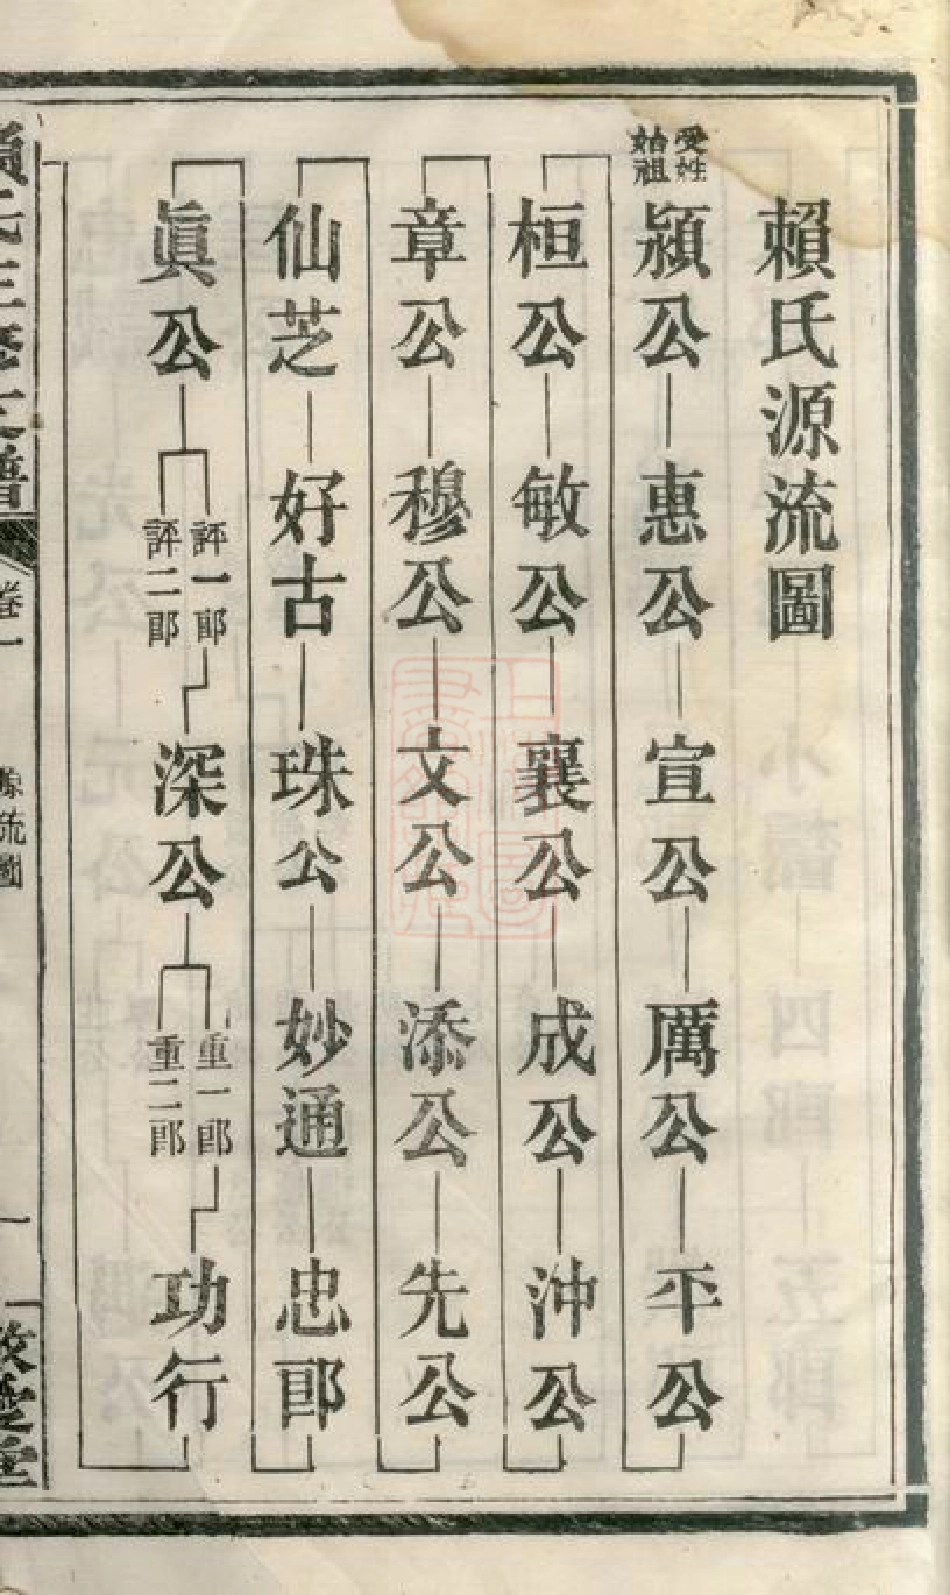 賴氏源流圖
受姓始祖
潁公 惠公 宣公 厲公 平公
桓公 敏公 襄公 成公 沖公
章公 穆公 文公 添公 先公
仙芝 好古 珠公 妙通 忠郎
眞公 評一郎 評二郎 深公 重一郎 重二郎 功行
賴氏三修族譜 卷一 源流圖 一 敦睦堂